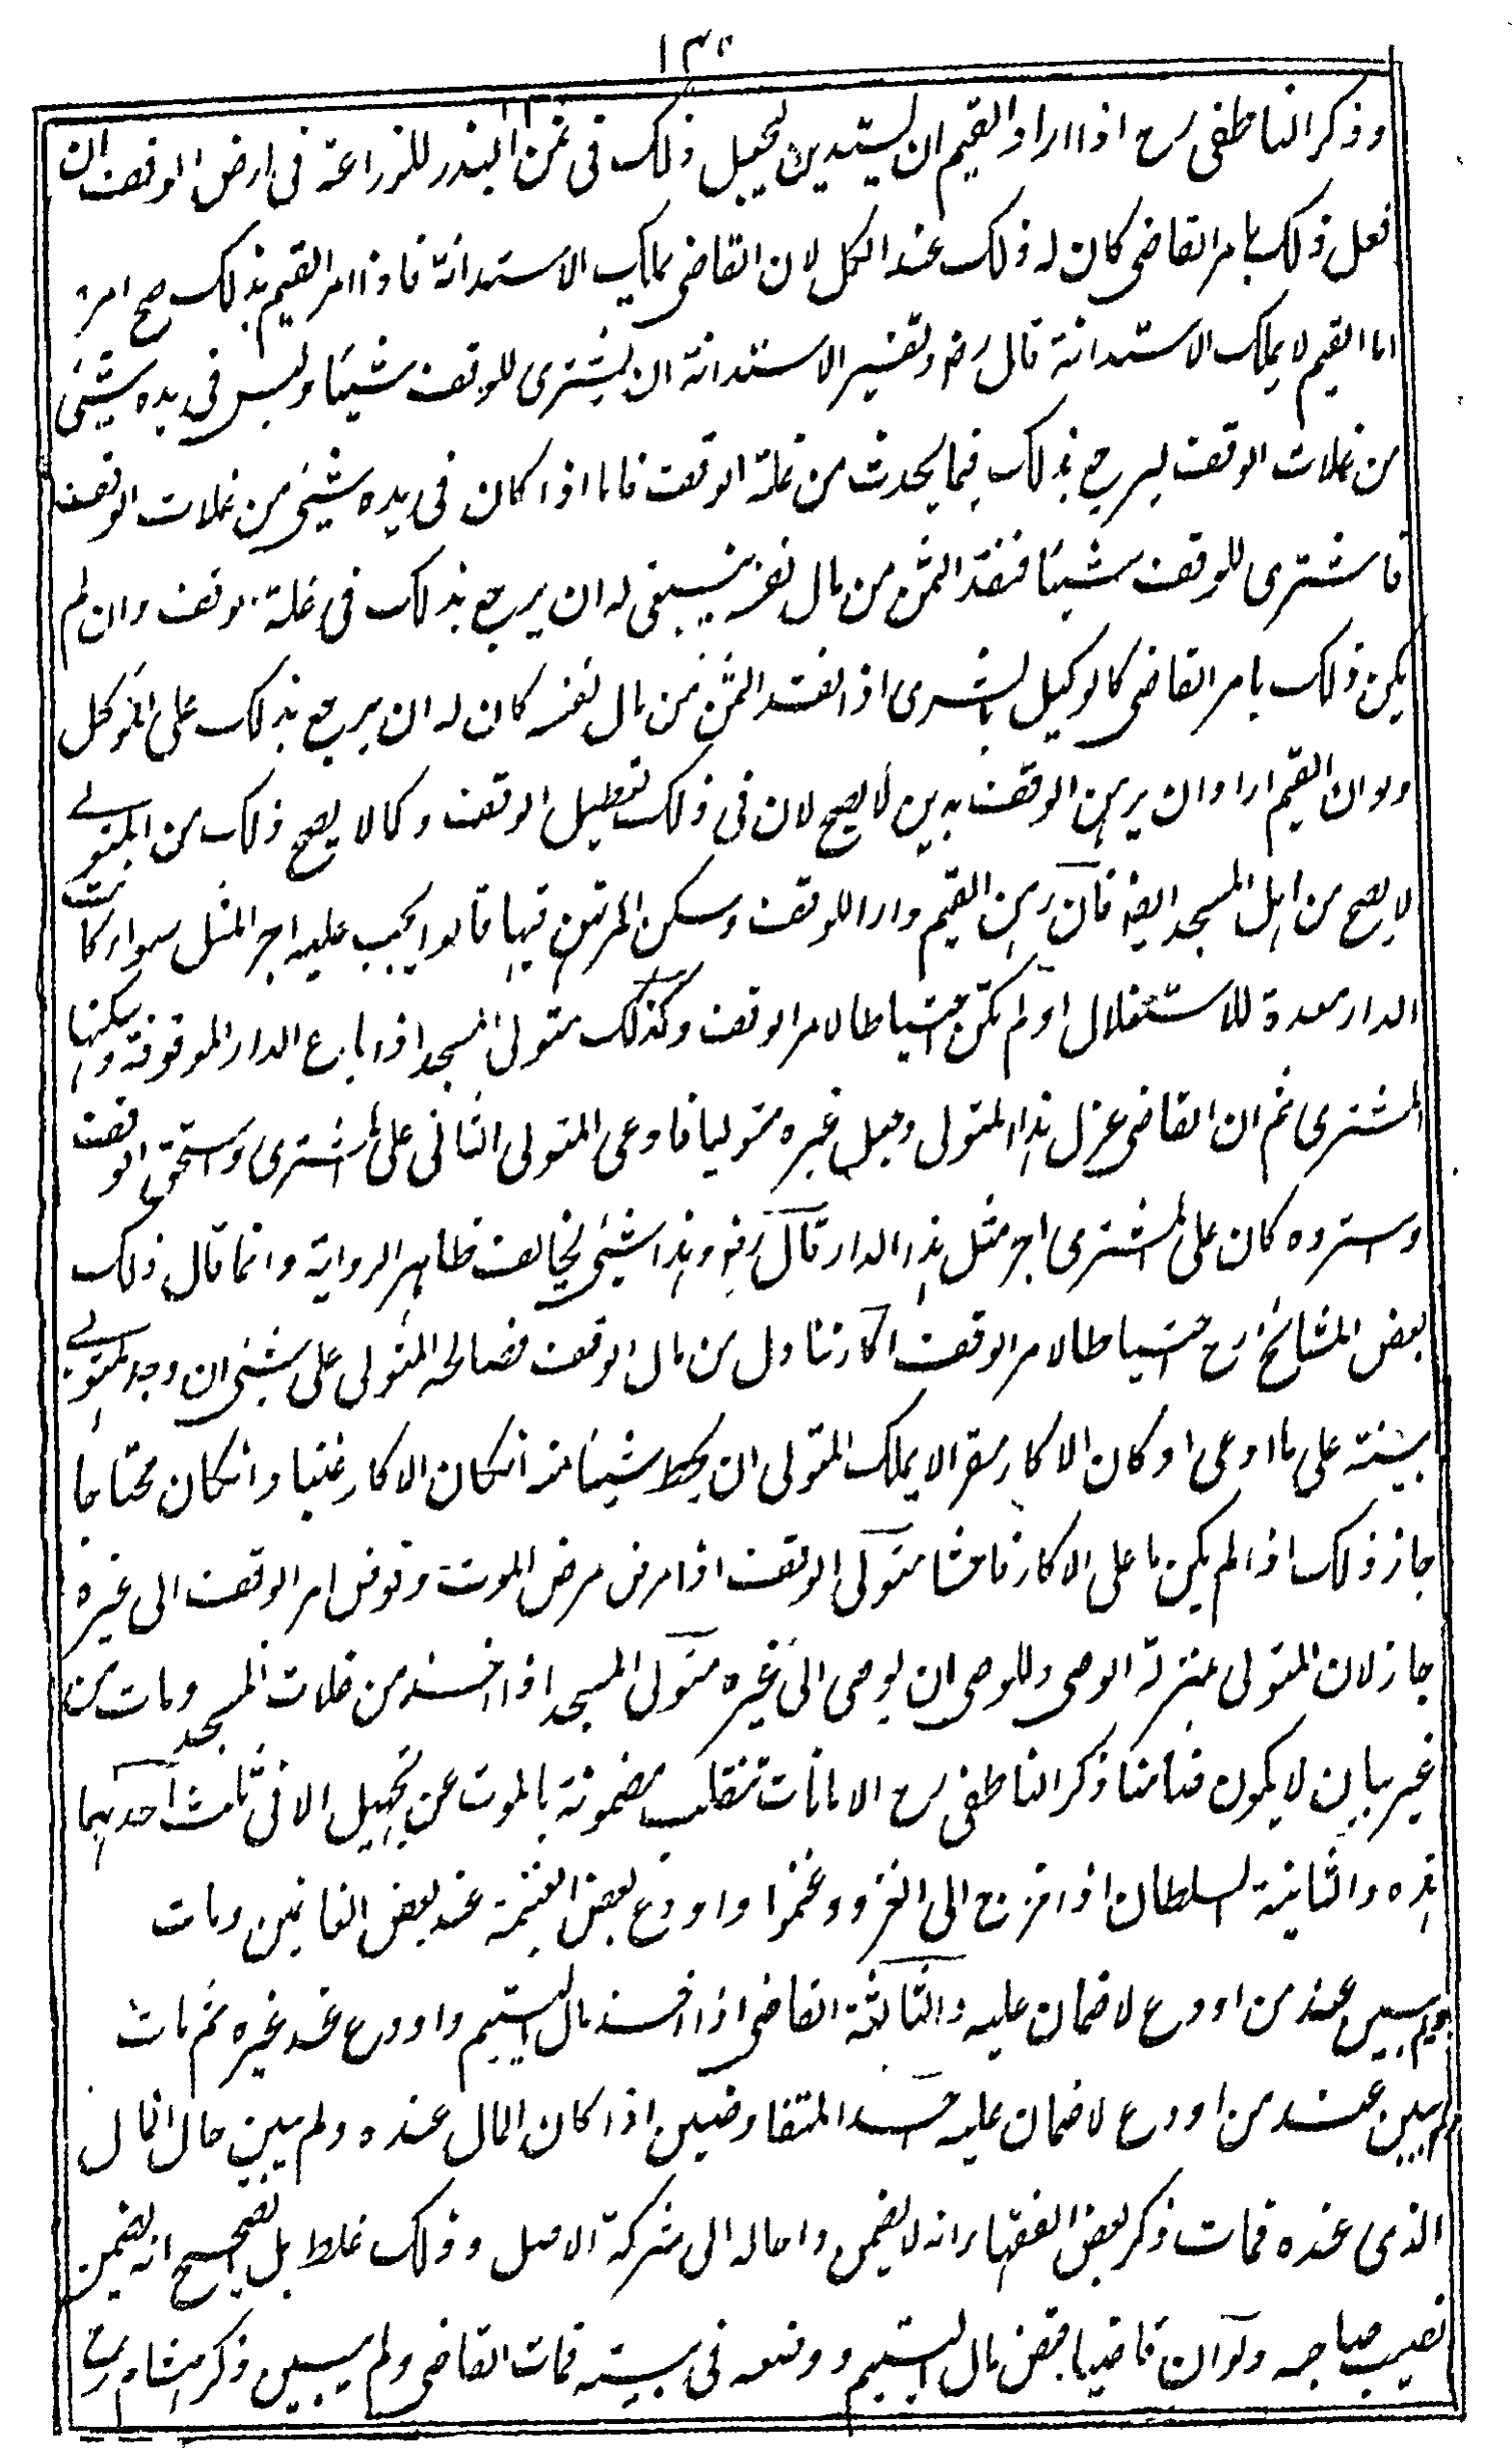 ١٣٠
وذكر الناطفى رح اذا اراد القيم ان يستدين ليجعل ذلك فى ثمن البذر للزراعة فى ارض الوقف ان
فعل ذلك بامر القاضى كان له ذلك عند الكل لان القاضى يملك الاستدانة فاذا امر القيم بذلك صح امره
اما القيم لا يملك الاستدانة قال رض وتفسير الاستدانة ان يشترى للوقف شيئا وليس فى يده شيئى
من غلات الوقف ليرجع بذلك فيما يحدث من غلة الوقف فاما اذا كان فى يده شيئى من غلات الوقف
فاشترى للوقف شيئا فنقد الثمن من مال نفسه ينبغى له ان يرجع بذلك فى غلة الوقف وان لم
يكن ذلك بامر القاضى كالوكيل بالشرى اذا نقد الثمن من مال نفسه كان له ان يرجع بذلك على الموكل
ولو ان القيم اراد ان يرهن الوقف بدين لا يصح لان فى ذلك تعطيل الوقف وكما لا يصح ذلك من المتولى
لا يصح من اهل المسجد ايضا فان رهن القيم دارا للوقف وسكن المرتهن فيها قالوا يجب عليه اجر المثل سواء كانت
الدار معدة للاستغلال او لم تكن احتياطا لامر الوقف وكذلك متولى المسجد اذا باع الدار الموقوفة وسكنها
المشترى ثم ان القاضى عزل هذا المتولى وجعل غيره متوليا فادعى المتولى الثانى على المشترى واستحق الوقف
واسترده كان على المشترى اجر مثل هذا الدار قال رض وهذا شيئى يخالف ظاهر الرواية وانما قال ذلك
بعض المشائخ رح احتياطا لامر الوقف اكار تناول من مال الوقف فصالحه المتولى على شيئى ان وجد المتولى
بينة على ما ادعى او كان الاكار مقرا لا يملك المتولى ان يحط شيئا منه انكان الاكار غنيا وانكان محتاجا
جاز ذلك اذا لم يكن ما على الاكار فاحشا متولى الوقف اذا مرض مرض الموت وفوض امر الوقف الى غيره
جاز لان المتولى بمنزلة الوصى وللوصى ان يوصى الى غيره متولى المسجد اذا اخذ من غلات المسجد ومات من
غير بيان لا يكون ضامنا ذكر الناطفى رح الامانات تنقلب مضمونة بالموت عن تجهيل الا فى ثلث احدهما
هذه والثانية السلطان اذا خرج الى الغزو وغنموا واودع بعض الغنيمة عند بعض الغانمين ومات
ولم يبين عند من اودع لا ضمان عليه والثالثة القاضى اذا اخذ مال اليتيم واودع عند غيره ثم مات
ولم يبين عند من اودع لا ضمان عليه احد المتفاوضين اذا كان المال عنده ولم يبين حال المال
الذى عنده فمات ذكر بعض الفقهاء انه لا يضمن واحاله الى شركة الاصل وذلك غلط بل الصحيح انه يضمن
نصيب صاحبه ولو ان قاضيا قبض مال اليتيم ووضعه فى بيته فمات القاضى ولم يبين ذكر هشام رح